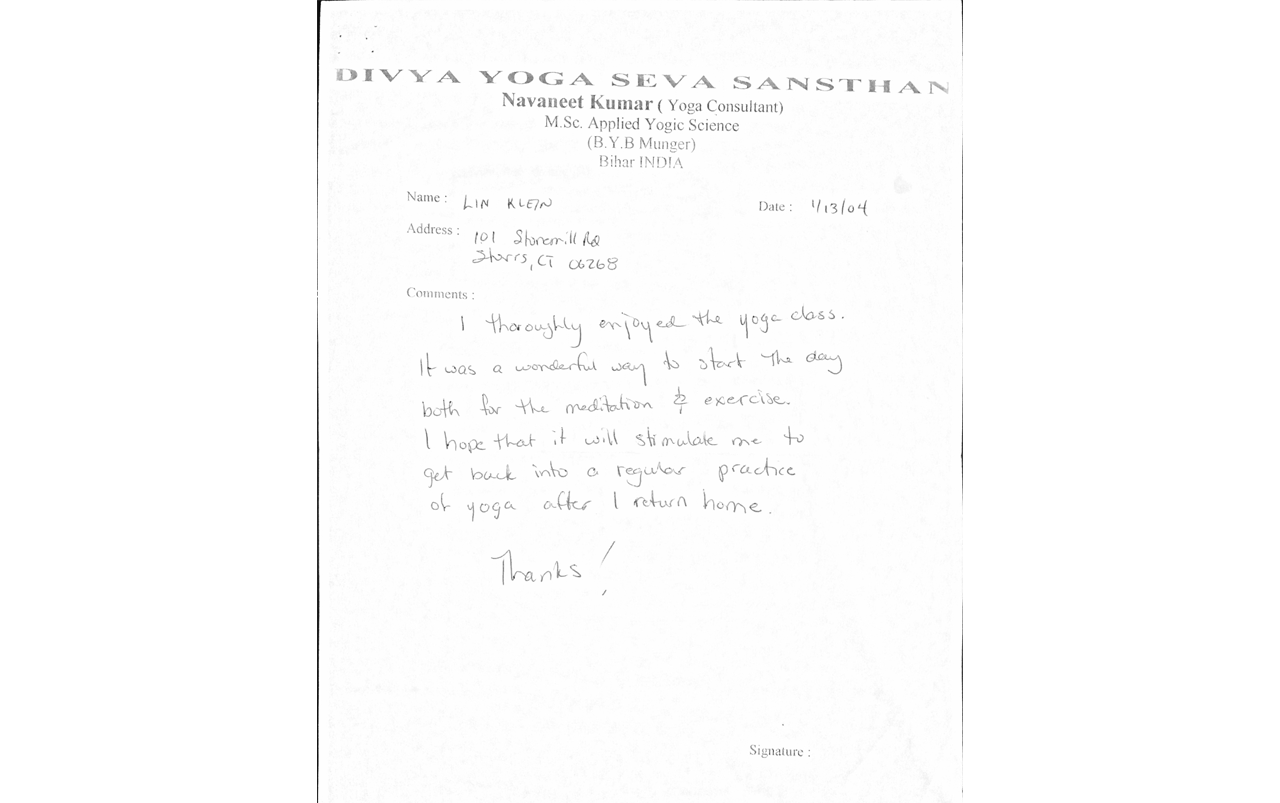 DIVYA YOGA SEVA SANSTHAN
Navaneet Kumar ( Yoga Consultant)
M.Sc. Applied Yogic Science
(B.Y.B Munger)
Bihar INDIA
Name : LIN KLEIN Date : 1/13/04
Address : 101 Stonemill Rd
Storrs, CT 06268
Comments :
I thoroughly enjoyed the yoga class.
It was a wonderful way to start the day
both for the meditation & exercise.
I hope that it will stimulate me to
get back into a regular practice
of yoga after I return home.
Thanks!
Signature :